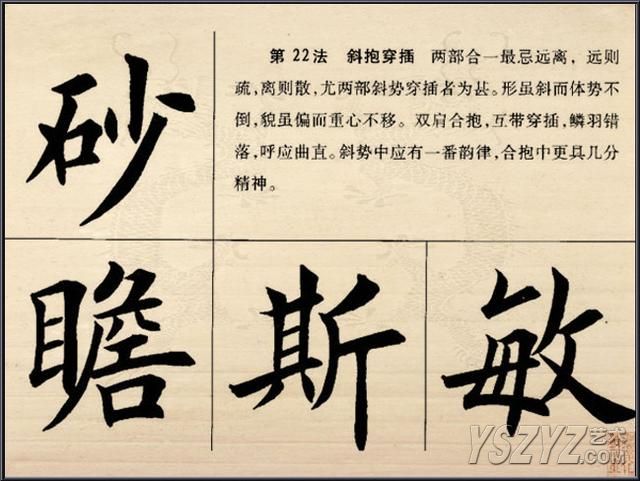 砂
第22法　斜抱穿插　两部合一最忌远离，远则
疏，离则散，尤两部斜势穿插者为甚。形虽斜而体势不
倒，貌虽偏而重心不移。双肩合抱，互带穿插，鳞羽错
落，呼应曲直。斜势中应有一番韵律，合抱中更具几分
精神。
瞻 斯 敏
YSZYZ艺术.com